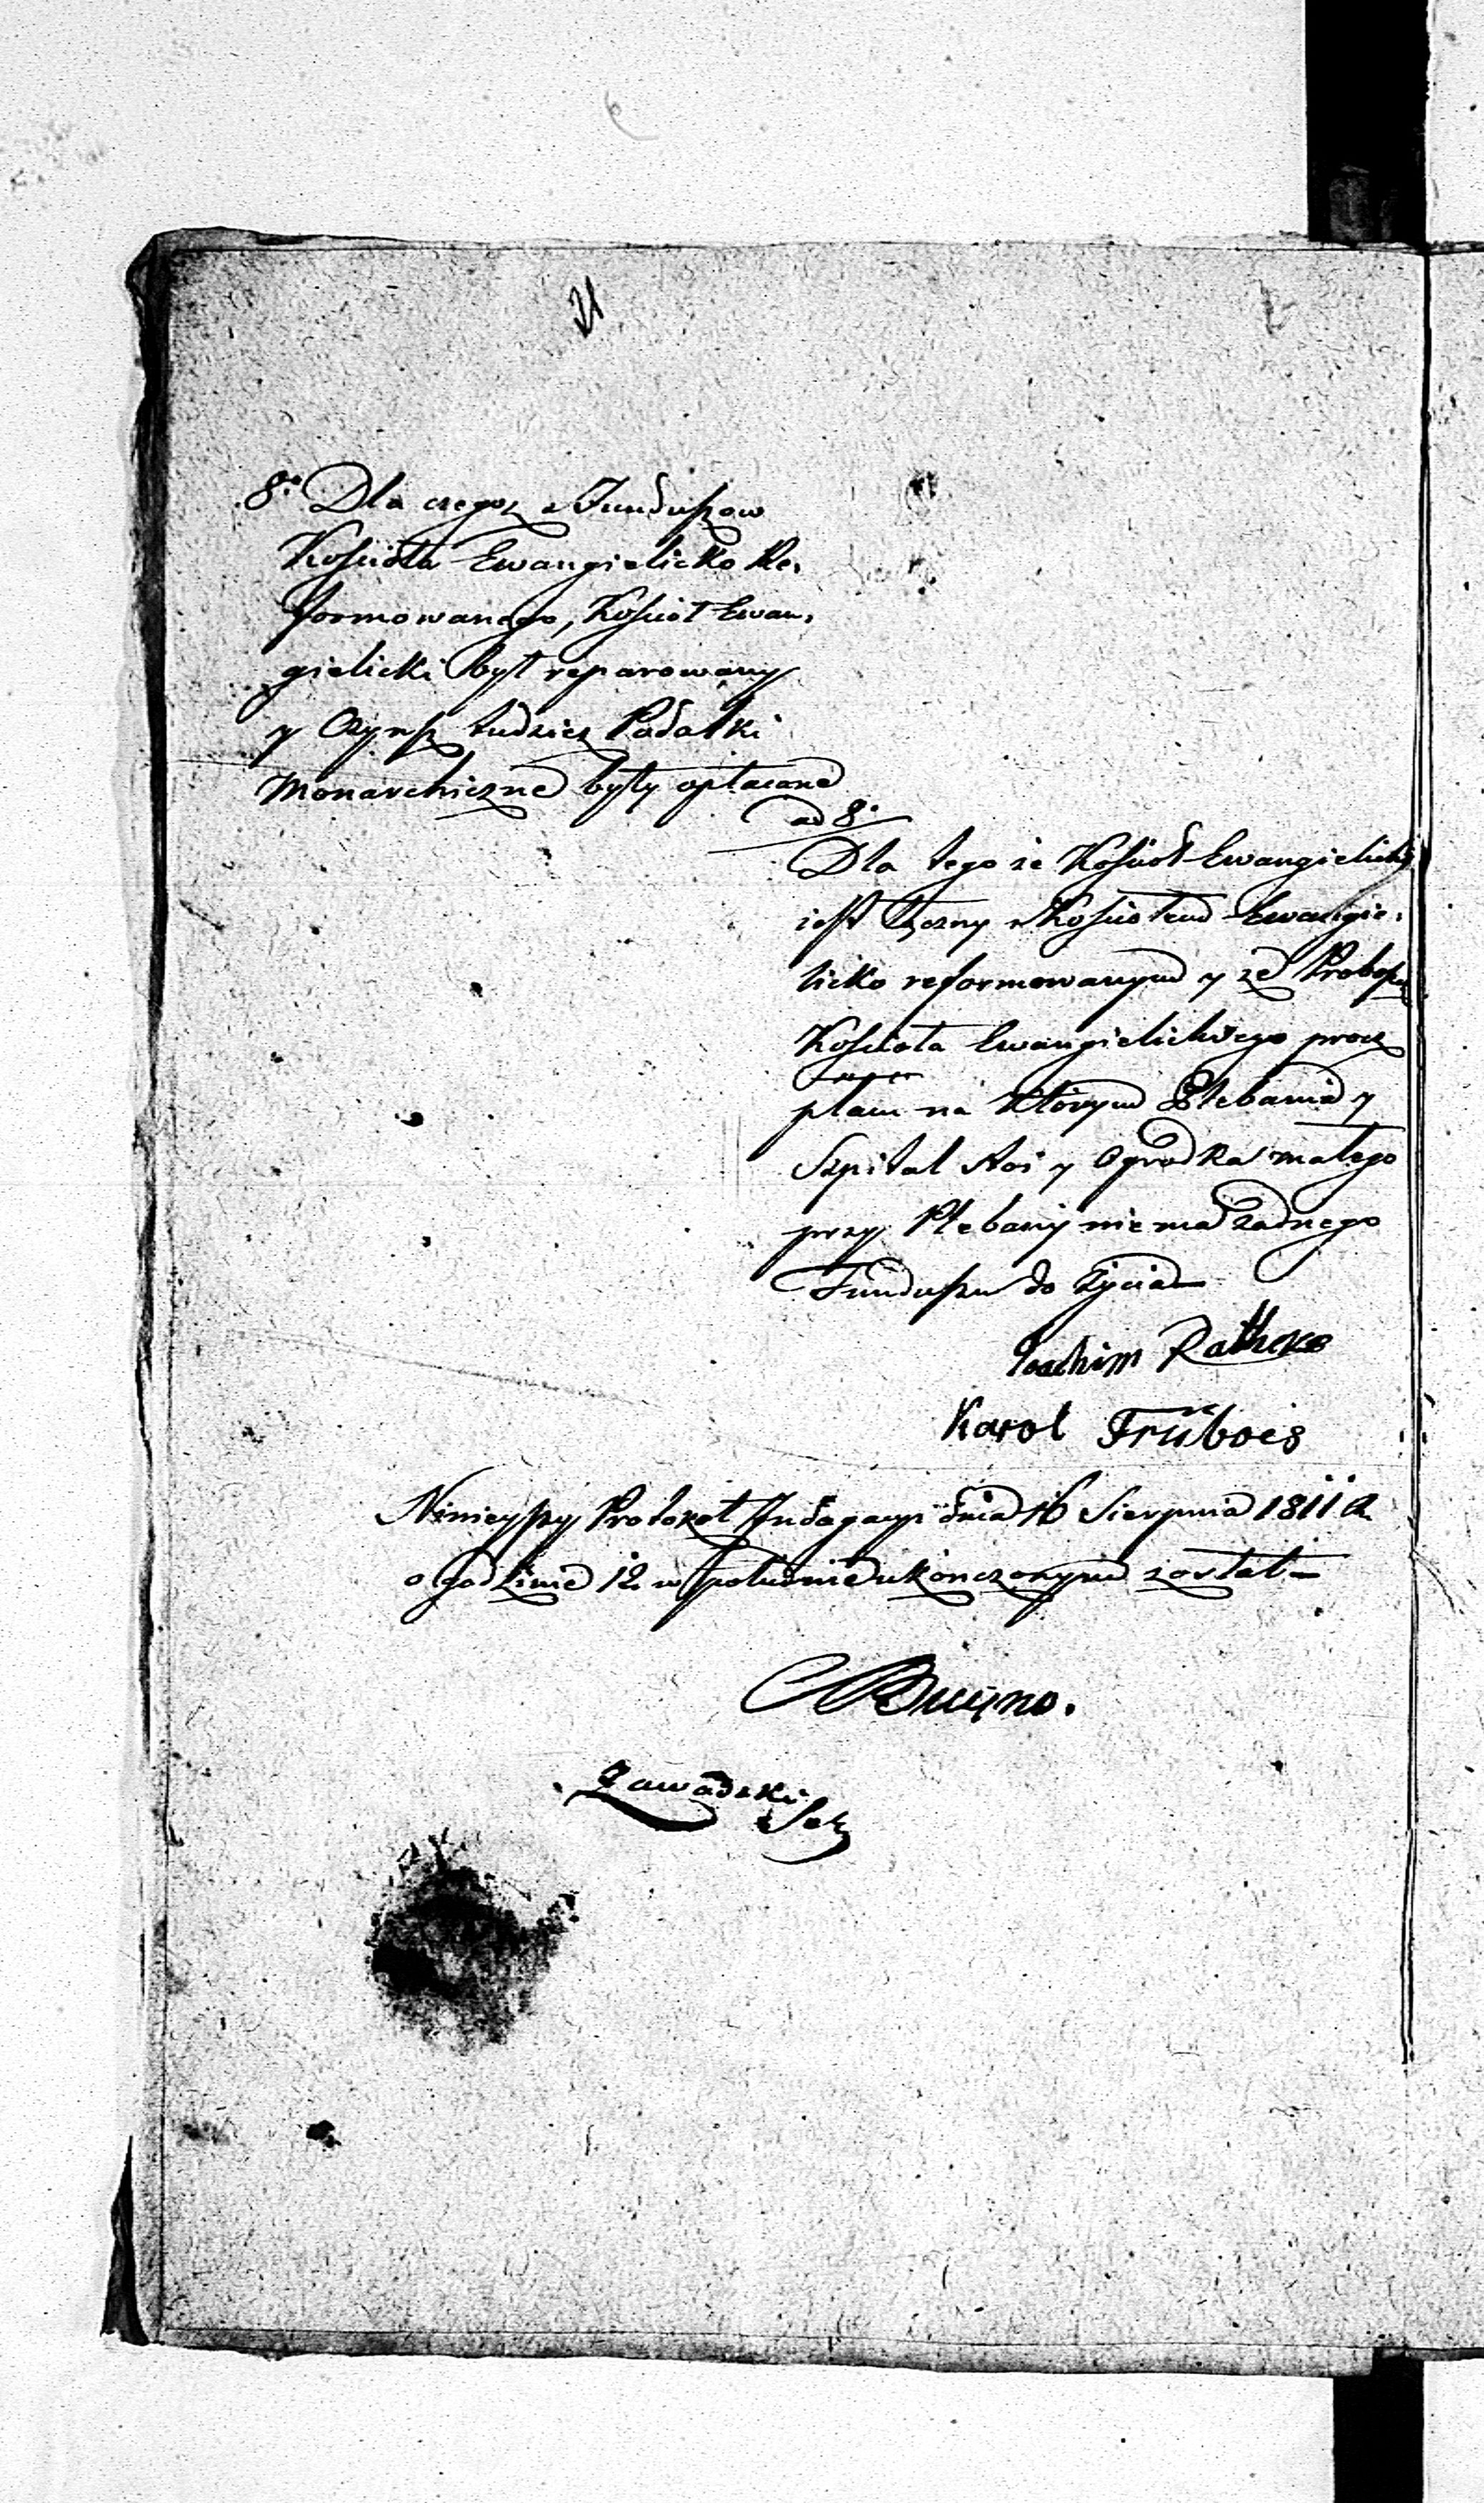 21
8° Dla czegoz z Funduszow
Kościoła Ewangielicko Re,
formowanego, Kościoł Ewan,
gielicki był reparowany
y Czynsz tudziez Podatki
Monarchiczne były opłacane
ad 8°
Dla tego że Kościoł Ewangielicki
iest łączny z Kościołem Ewangie,
licko reformowanym y że Proboszcz
Kościoła Ewangielickiego procz
placu na ktorym Plebania y
Szpital stoi y Ogrodka małego
przy Plebanij niema żadnego
Funduszu do życia
Joachim Rathcke
Karol Früboes
Ninieyszy Protokoł Indagacyi dnia 16 Sierpnia 1811 R
o godzinie 12 w południe ukończonym został
Zawadzki Sek